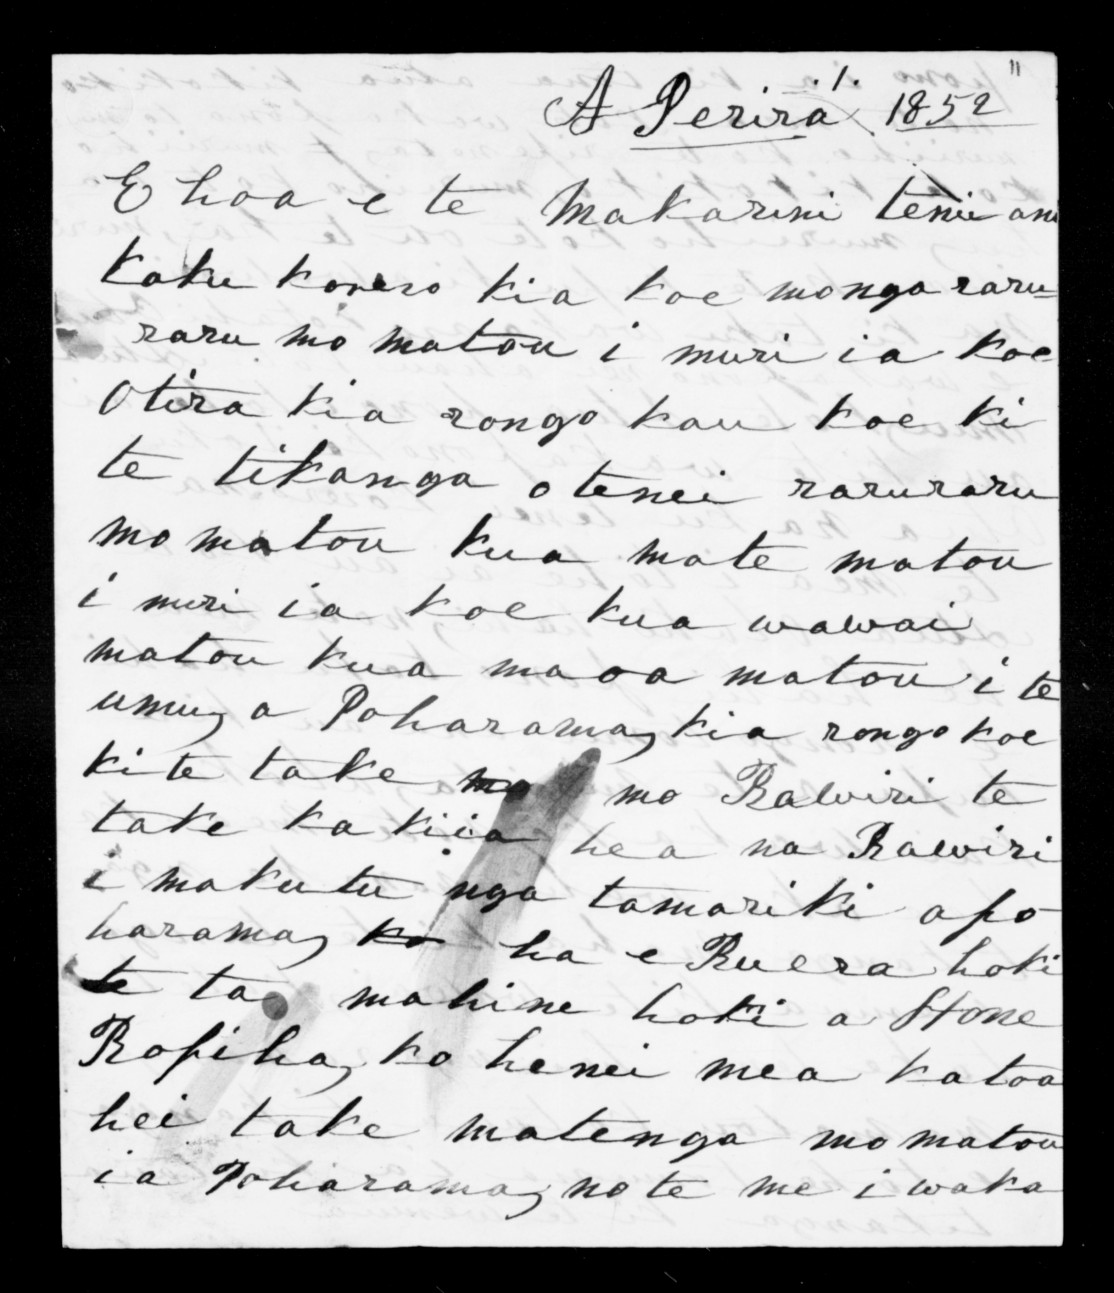 A Perira 1. 1852
E hoa e te Makarini tenei ano
kaku korero kia koe monga raru=
raru mo matou i muri ia koe
Otira kia rongo kau koe ki
te tikanga o tenei raruraru
mo matou kua mate matou
i muri ia koe kua wawai
matou kua maoa matou i te
umu, a Poharama, kia rongo koe
ki te take mo Rawiri te
take ka kiia hea na Rawiri
i makutu nga tamariki apo
harama, ha e Ruera hoki
te ta mahine hoki a Hone
Ropiha, ko henei mea katoa
hei take matenga mo matou
ia Poharama, no te me i waka